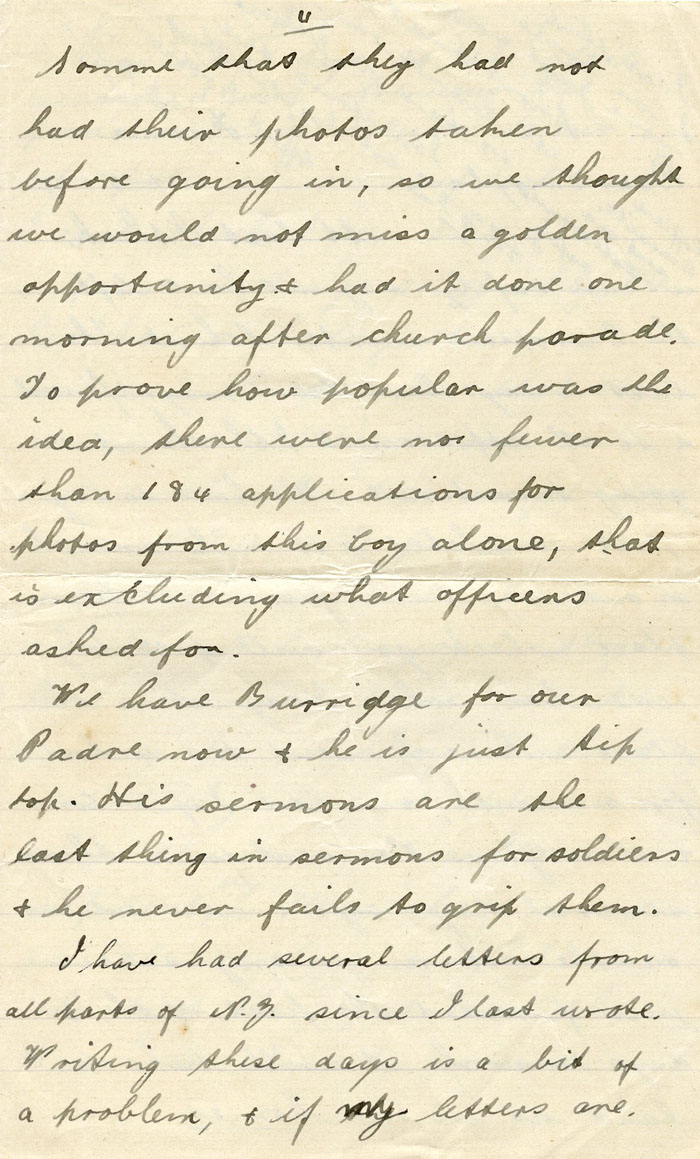 4
Somme that they had not
had their photos taken
before going in, so we thought
we would not miss a golden
opportunity & had it done one
morning after church parade.
To prove how popular was the
idea, there were no fewer
than 184 applications for
photos from this Coy alone, that
is excluding what officers
asked for.
We have Burridge for our
Padre now & he is just tip
top. His sermons are the
last thing in sermons for soldiers
& he never fails to grip them.
I have had several letters from
all parts of N.Z. since I last wrote.
Writing these days is a bit of
a problem, & if my letters are.